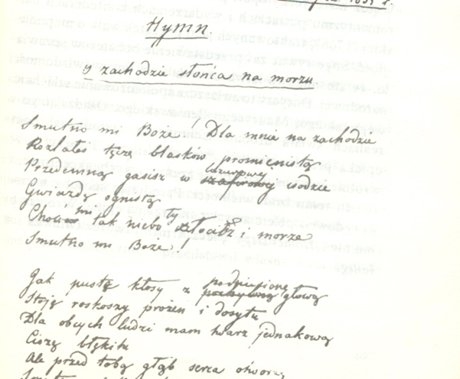 Hymn
zachodzie słońca na morzu.
Smutno mi Boże! Dla mnie na zachodzie
Rozlałeś tęczę blasków promienistą
Przedemną gasisz w lazurowej wodzie
Gwiazdę ognistą
Choć mi tak niebo ty złocisz i morze
Smutno mi Boże!
Jak puste kłosy z podniesioną głową
Stoję roskoszy próżen i dosytu
Dla obcych ludzi mam twarz jednakową
Ciszę błękitu
Ale przed tobą głąb serca otworzę